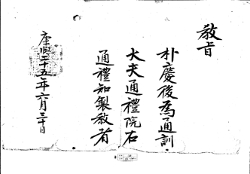 教旨
朴慶後爲通訓
大夫通禮院右
通禮知製教者
康熙二十五年六月三十日